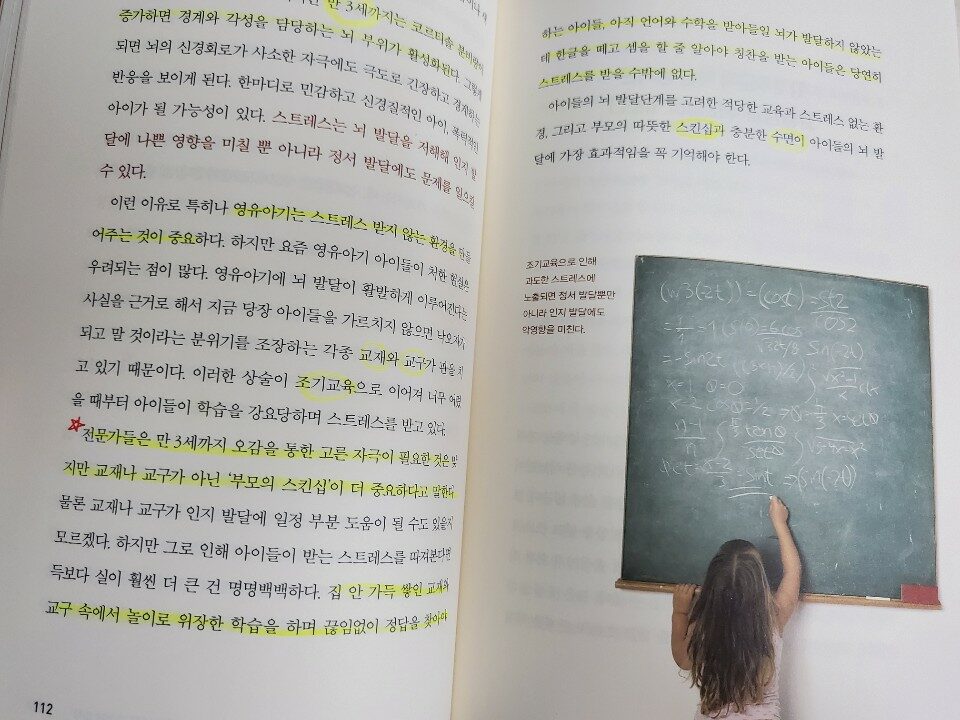 만 3세까지는 코르티솔 분비량이
증가하면 경계와 각성을 담당하는 뇌 부위가 활성화된다. 그렇게
되면 뇌의 신경회로가 사소한 자극에도 극도로 긴장하고 경계하는
반응을 보이게 된다. 한마디로 민감하고 신경질적인 아이, 폭력적인
아이가 될 가능성이 있다. 스트레스는 뇌 발달을 저해해 인지 발
달에 나쁜 영향을 미칠 뿐 아니라 정서 발달에도 문제를 일으킬
수 있다.
이런 이유로 특히나 영유아기는 스트레스 받지 않는 환경을 만들
어주는 것이 중요하다. 하지만 요즘 영유아기 아이들이 처한 현실은
우려되는 점이 많다. 영유아기에 뇌 발달이 활발하게 이루어진다는
사실을 근거로 해서 지금 당장 아이들을 가르치지 않으면 낙오자가
되고 말 것이라는 분위기를 조장하는 각종 교재와 교구가 판을 치
고 있기 때문이다. 이러한 상술이 조기교육으로 이어져 너무 어렸
을 때부터 아이들이 학습을 강요당하며 스트레스를 받고 있다.
전문가들은 만 3세까지 오감을 통한 고른 자극이 필요한 것은 맞
지만 교재나 교구가 아닌 '부모의 스킨십'이 더 중요하다고 말한다.
물론 교재나 교구가 인지 발달에 일정 부분 도움이 될 수도 있을지
모르겠다. 하지만 그로 인해 아이들이 받는 스트레스를 따져본다면
득보다 실이 훨씬 더 큰 건 명명백백하다. 집 안 가득 쌓인 교재와
교구 속에서 놀이로 위장한 학습을 하며 끊임없이 정답을 찾아야
112
하는 아이들, 아직 언어와 수학을 받아들일 뇌가 발달하지 않았는
데 한글을 떼고 셈을 할 줄 알아야 칭찬을 받는 아이들은 당연히
스트레스를 받을 수밖에 없다.
아이들의 뇌 발달단계를 고려한 적당한 교육과 스트레스 없는 환
경, 그리고 부모의 따뜻한 스킨십과 충분한 수면이 아이들의 뇌 발
달에 가장 효과적임을 꼭 기억해야 한다.
조기교육으로 인해
과도한 스트레스에
노출되면 정서 발달뿐만
아니라 인지 발달에도
악영향을 미친다.